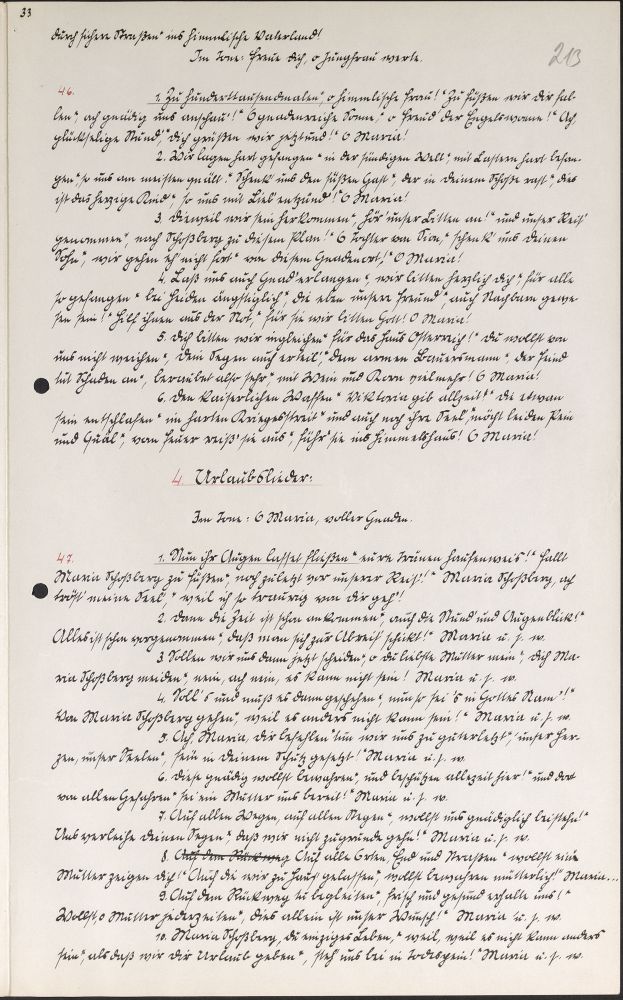 33
durch sichere Straßen" ins himmlische Vaterland!
Im Tone: Freue dich, o Jungfrau werte.
213
46. 1. Zu hunderttausendmalen", o himmlische Frau!" Zu Füßen wir dir fal-
len", ach gnädig uns anschau'!" O gnadenreiche Sonne", o Freud der Engelswonne!" Ach
glückselige Stund", dich grüßen wir jetzund!" O Maria!
2. Wir lagen hart gefangen" in der sündigen Welt", mit Lastern hart behan-
gen", so uns am meisten quält." Schenk' uns den süßen Gast", der in deinem Schoße rast", dies
ist das herzige Kind", so uns mit Lieb' entzünd'!" O Maria!
3. Dieweil wir sein herkommen", hör' unser Bitten an!" und unser Reis'
genommen", nach Schoßberg zu diesem Plan!" O Tochter von Sion", schenk' uns deinen
Sohn", wir gehen eh' nicht fort" von diesem Gnadenort!" O Maria!
4. Laß uns auch Gnad' erlangen", wir bitten herzlich dich", für alle
so gefangen" bei Heiden ängstiglich", die eben unsere Freund" auch Nachbarn gewe-
sen sein!" Hilf ihnen aus der Not", für sie wir bitten Gott! O Maria!
5. Dich bitten wir ingleichen" für das Haus Österreich!" du wollst von
uns nicht weichen", dein Segen auch erteil'!" dem armen Bauersmann", der Feind
tut Schaden an", beraubet also sehr", mit Wein und Korn vielmehr! O Maria!
6. Den kaiserlichen Waffen" Viktoria gib allzeit!" die etwan
sein entschlafen" im harten Kriegesstreit" und auch noch ihre Seel'," möcht leiden Pein
und Qual", vom Feuer reiß' sie aus", führ' sie ins Himmelshaus! O Maria!
4. Urlaubslieder:
Im Tone: O Maria, voller Gnaden.
47. 1. Nun ihr Augen lasset fließen" eure Tränen haufenweis'!" Fallt
Maria Schoßberg zu Füßen", noch zuletzt vor unserer Reis'!" Maria Schoßberg, ach
tröst' meine Seel'," weil ich so traurig von dir geh'!
2. Dann die Zeit ist schon ankommen", auch die Stund' und Augenblick!"
Alles ist schon vorgenommen", daß man sich zur Abreis' schickt!" Maria u. s. w.
3. Sollen wir uns dann jetzt scheiden", o du liebste Mutter mein", dich Ma-
ria Schoßberg meiden", nein, ach nein, es kann nicht sein! Maria u. s. w.
4. Soll's und muß es dann geschehen", nun so sei's in Gottes Nam'!"
Von Maria Schoßberg gehen", weil es anders nicht kann sein!" Maria u. s. w.
5. Ach, Maria, dir befehlen" tun wir uns zu guterletzt", unser Her-
zen, unser Seelen", sein in deinem Schutz gesetzt!" Maria u. s. w.
6. Diese gnädig wollst bewahren", und beschützen allezeit hier!" und dort
von allen Gefahren" sei ein Mutter uns bereit!" Maria u. s. w.
7. Auf allen Wegen, auf allen Stegen", wollst uns gnädiglich beistehn!"
Uns verleihe deinen Segen", daß wir nicht zugrunde gehn!" Maria u. s. w.
8. Auf dem Rückweg Auf alle Orten, End' und Straßen" wollst eine
Mutter zeigen dich!" Auch die wir zu Haus gelassen", wollst bewahren mütterlich!" Maria...
9. Auf dem Rückweg tu begleiten", frisch und gesund erhalte uns!"
Wollst, o Mutter jederzeiten", dies allein ist unser Wunsch!" Maria u. s. w.
10. Maria Schoßberg, du einziges Leben", weil, weil es nicht kann anders
sein", als daß wir dir Urlaub geben", steh' uns bei in Todespein!" Maria u. s. w.